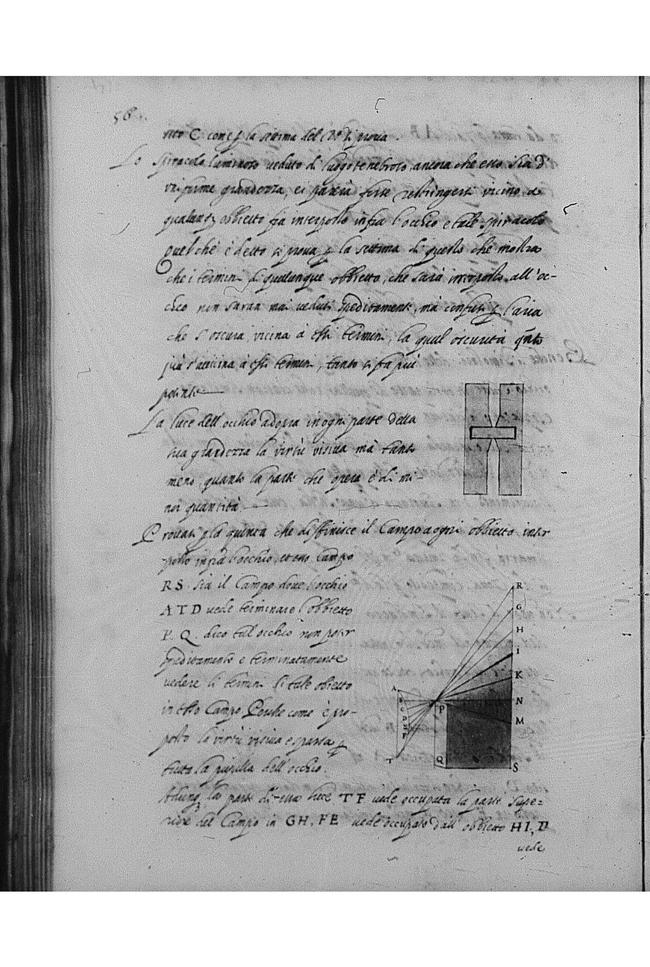 58
rito C come p la settima del 2.º si proua
Lo Spiracolo luminoso ueduto di luogo tenebroso ancora che esso sia d
uniforme grandezza, ei parrà forte restringersi uicino a
qualunq obbietto fia interposto infra l'occhio e tale spiracolo
Quel che è detto si proua p la settima di questo che mostra
che i termini di qualunque obbietto, che sarà interposto all'oc-
chio non saran mai ueduti speditamente, mà confusi p l'aria
che s'oscura uicina a essi termini, la qual oscurità qnto
più s'auicina à essi termini, tanto si fà più
potente
La luce dell'occhio adopra in ogni parte della
sua grandezza la uirtù uisiua mà tanto
meno quanto la parte che opera è di mi-
nor quantità
Prouasi p la quinta che diffinisce il Campo a ogni obbietto inter
posto infra l'occhio, et esso Campo
RS sia il Campo doue l'occhio
ATD uede terminare l'obbietto
P. Q. dico tal'occhio non poter
speditamente e terminatamente
uedere li termini di tale obietto
in esso Campo. Perche come è pro-
posto la uirtù uisiua e sparsa p
tutta la pupilla dell'occhio.
Adunq la parte di essa luce TF uede occupata la parte supe-
riore del Campo in GH, FE uede occupato dall'obbietto HI, D
uede
R
G
H
I
K
N
M
S
A
P
T
Q